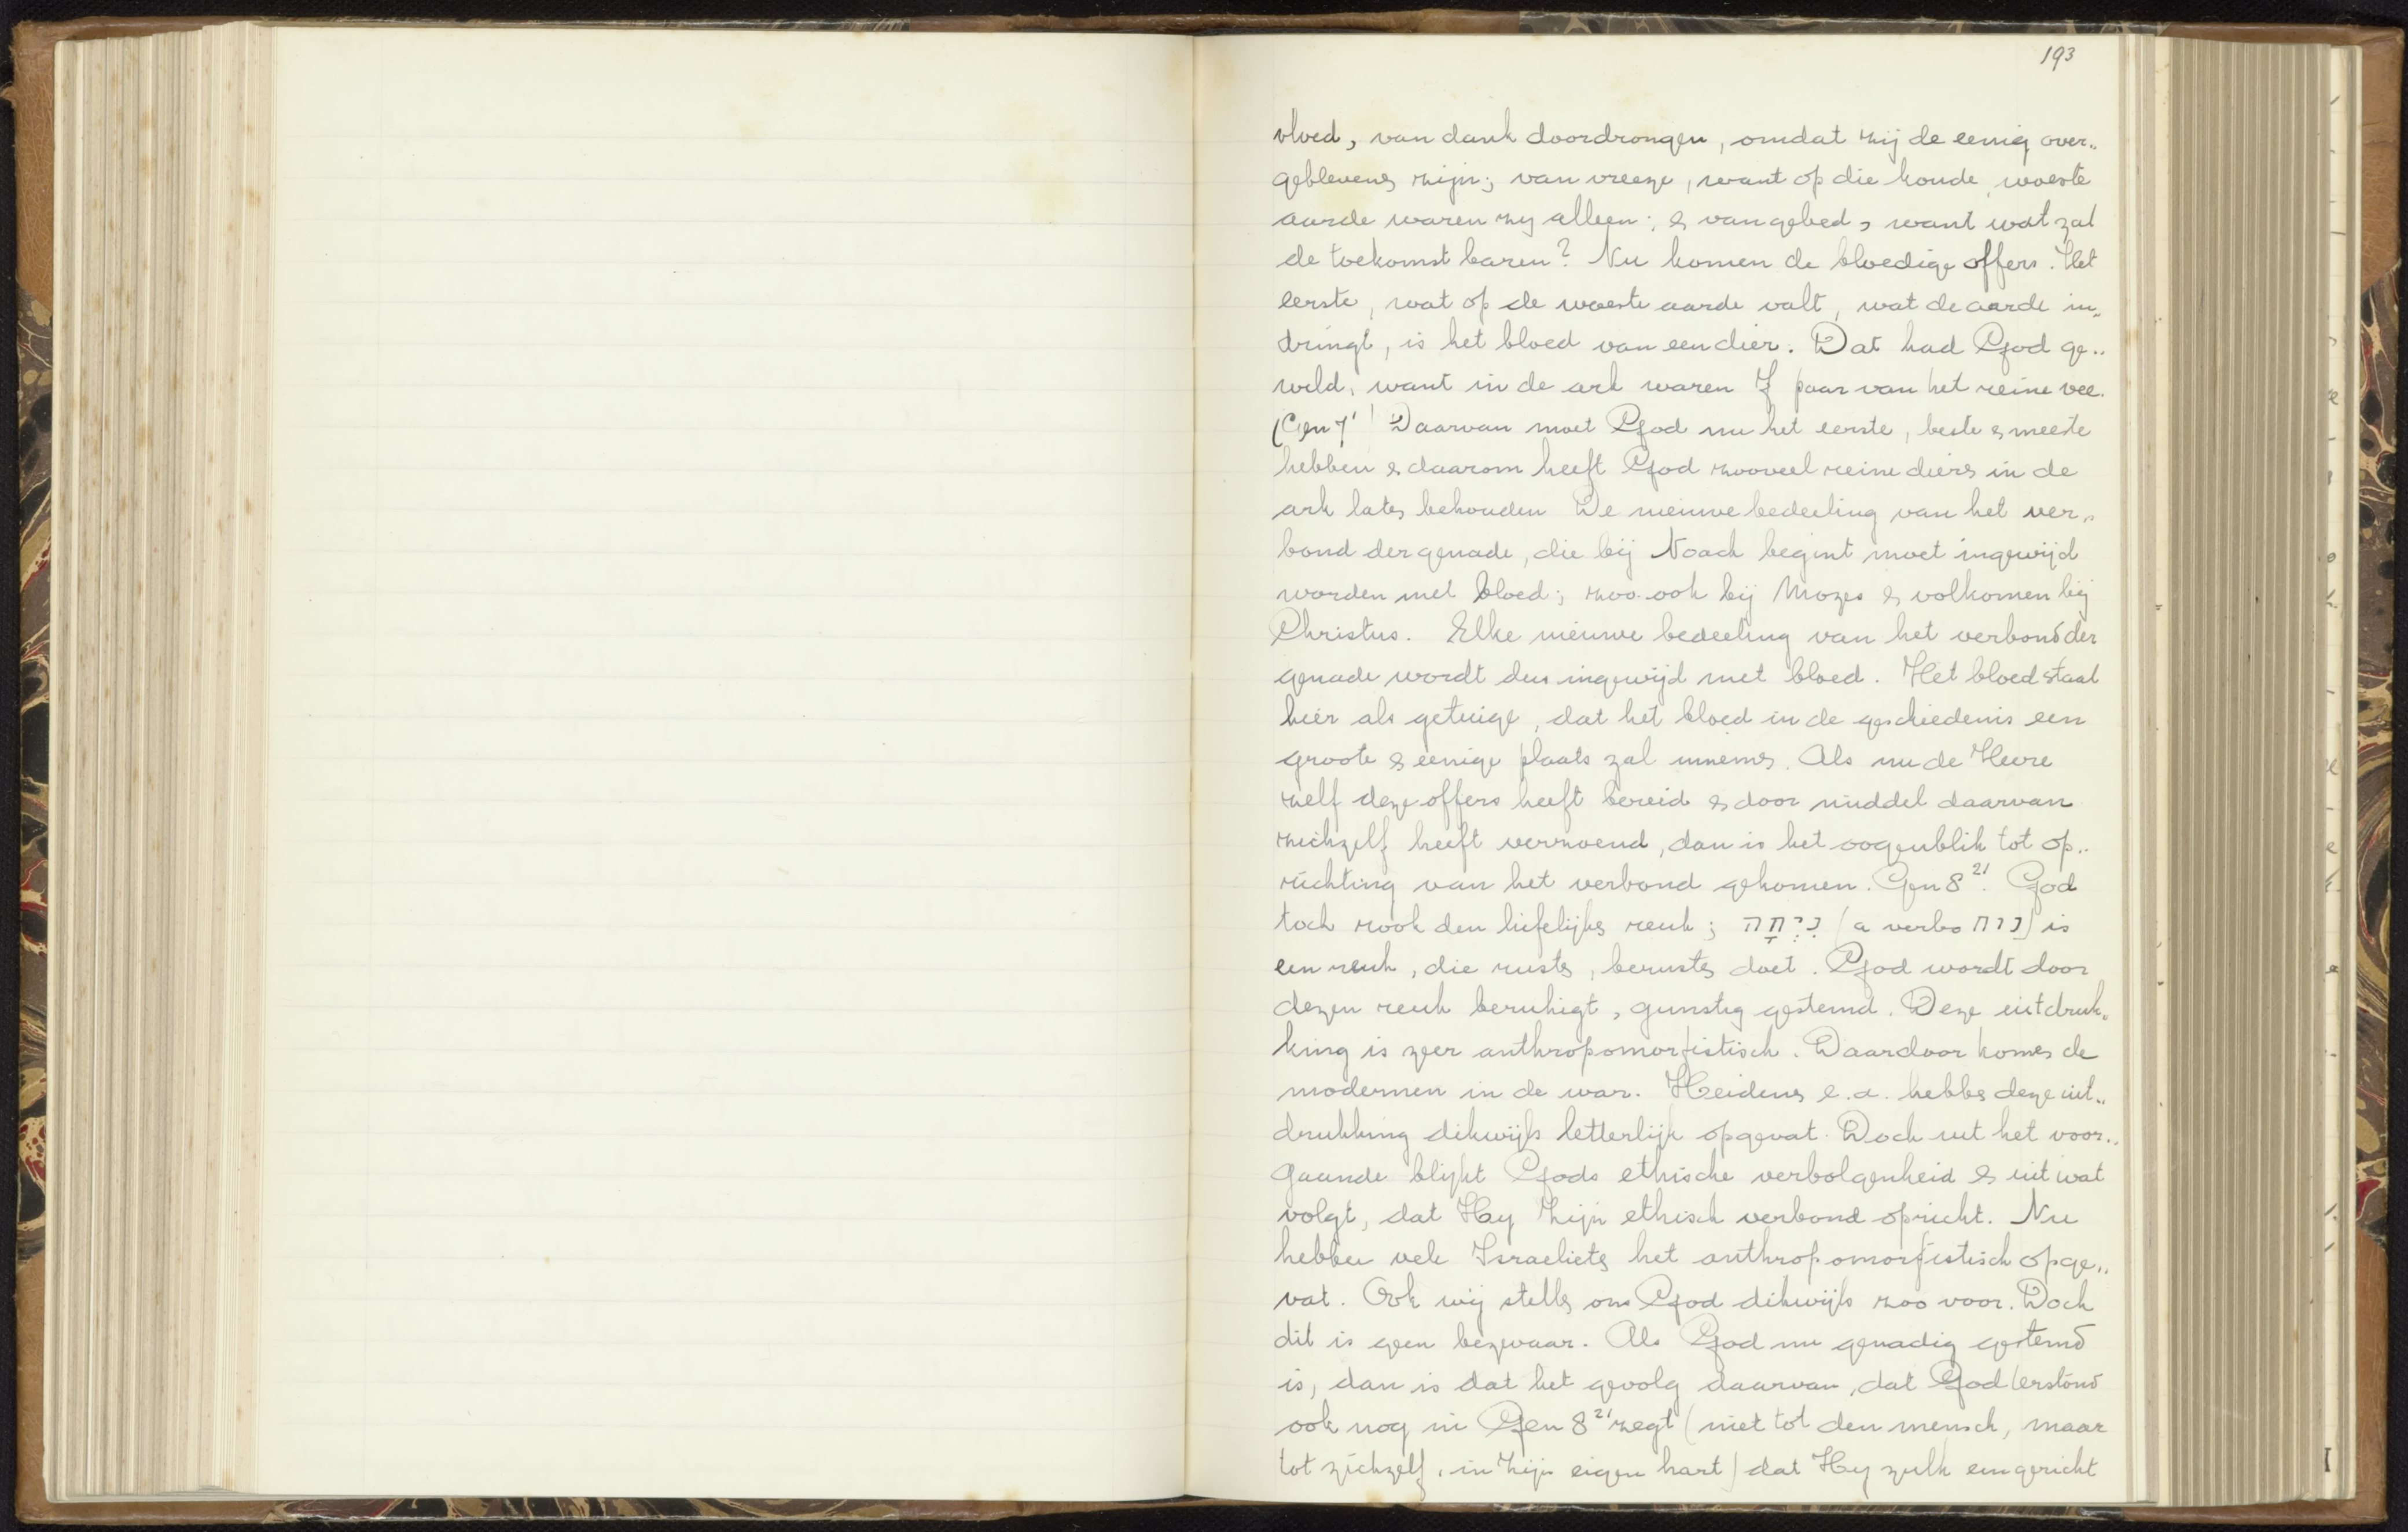 193
vloed, van dank doordrongen, omdat zij de eenig over„
geblevenen zijn; van vreeze, want op die koude, woeste
aarde waren zij alleen; en van gebed, want wat zal
de toekomst baren? Nu komen de bloedige offers. Het
eerste, wat op de woeste aarde valt, wat de aarde in„
dringt, is het bloed van een dier. Dat had God ge„
wild, want in de ark waren 7 paar van het reine vee.
(Gen 7¹) Daarvan moet God nu het eerste, beste en meeste
hebben en daarom heeft God zooveel reine dieren in de
ark laten behouden De nieuwe bedeeling van het ver„
bond der genade, die bij Noach begint moet ingewijd
worden met bloed; zoo ook bij Mozes en volkomen bij
Christus. Elke nieuwe bedeeling van het verbond der
genade wordt dus ingewijd met bloed. Het bloed staat
hier als getuige, dat het bloed in de geschiedenis een
groote en eenige plaats zal innemen. Als nu de Heere
zelf deze offers heeft bereid en door middel daarvan
zichzelf heeft verzoend, dan is het oogenblik tot op„
richting van het verbond gekomen. Gen 8²¹. God
toch rook den liefelijken reuk; נִיחֹחַ (a verbo נוח) is
een reuk, die rusten, berusten doet. God wordt door
dezen reuk beruhigt, gunstig gestemd. Deze uitdruk„
king is zeer anthropomorfistisch. Daardoor komen de
modernen in de war. Heidenen e.a. hebben deze uit„
drukking dikwijls letterlijk opgevat. Doch uit het voor„
gaande blijkt Gods ethische verbolgenheid en uit wat
volgt, dat Hij Zijn ethisch verbond opricht. Nu
hebben vele Israelieten het anthropomorfistisch opge„
vat. Ook wij stellen ons God dikwijls zoo voor. Doch
dit is geen bezwaar. Als God nu genadig gestemd
is, dan is dat het gevolg daarvan, dat God terstond
ook nog in Gen 8²¹ zegt (niet tot den mensch, maar
tot zichzelf, in Zijn eigen hart) dat Hij zulk een gericht